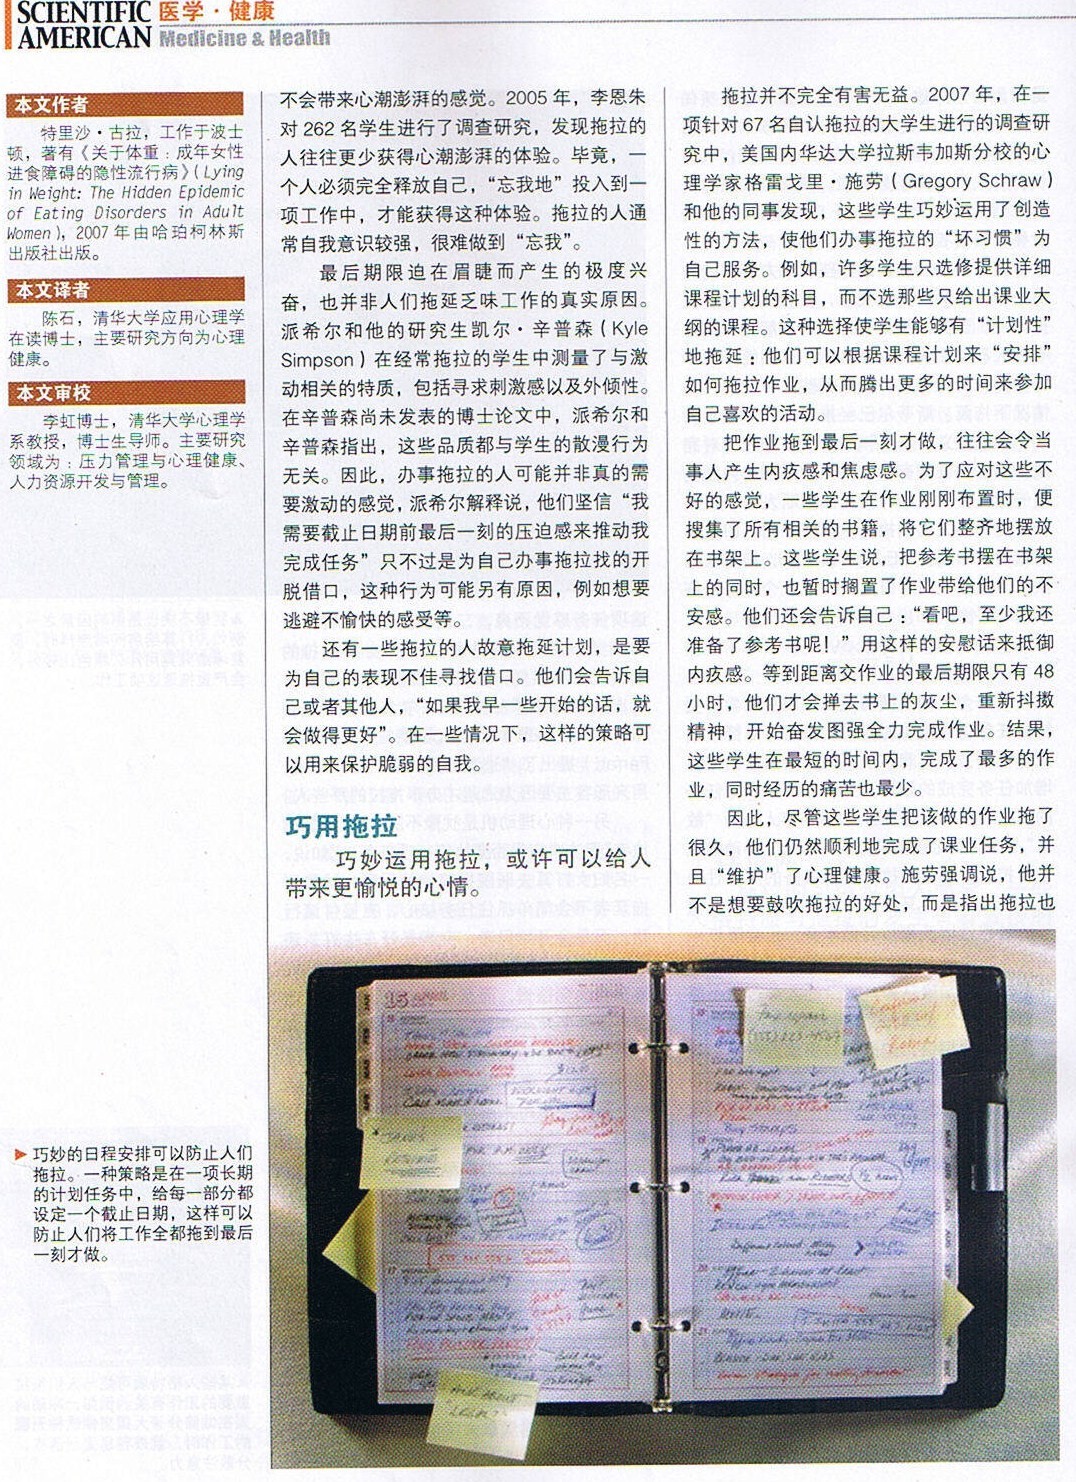 SCIENTIFIC
AMERICAN
医学·健康
Medicine & Health
本文作者
特里沙·古拉，工作于波士
顿，著有《关于体重：成年女性
进食障碍的隐性流行病》（Lying
in Weight: The Hidden Epidemic
of Eating Disorders in Adult
Women），2007年由哈珀柯林斯
出版社出版。
本文译者
陈石，清华大学应用心理学
在读博士，主要研究方向为心理
健康。
本文审校
李虹博士，清华大学心理学
系教授，博士生导师。主要研究
领域为：压力管理与心理健康、
人力资源开发与管理。
不会带来心潮澎湃的感觉。2005年，李恩朱
对262名学生进行了调查研究，发现拖拉的
人往往更少获得心潮澎湃的体验。毕竟，一
个人必须完全释放自己，“忘我地”投入到一
项工作中，才能获得这种体验。拖拉的人通
常自我意识较强，很难做到“忘我”。
最后期限迫在眉睫而产生的极度兴
奋，也并非人们拖延乏味工作的真实原因。
派希尔和他的研究生凯尔·辛普森（Kyle
Simpson）在经常拖拉的学生中测量了与激
动相关的特质，包括寻求刺激感以及外倾性。
在辛普森尚未发表的博士论文中，派希尔和
辛普森指出，这些品质都与学生的散漫行为
无关。因此，办事拖拉的人可能并非真的需
要激动的感觉，派希尔解释说，他们坚信“我
需要截止日期前最后一刻的压迫感来推动我
完成任务”只不过是为自己办事拖拉找的开
脱借口，这种行为可能另有原因，例如想要
逃避不愉快的感受等。
还有一些拖拉的人故意拖延计划，是要
为自己的表现不佳寻找借口。他们会告诉自
己或者其他人，“如果我早一些开始的话，就
会做得更好”。在一些情况下，这样的策略可
以用来保护脆弱的自我。
巧用拖拉
巧妙运用拖拉，或许可以给人
带来更愉悦的心情。
拖拉并不完全有害无益。2007年，在一
项针对67名自认拖拉的大学生进行的调查研
究中，美国内华达大学拉斯韦加斯分校的心
理学家格雷戈里·施劳（Gregory Schraw）
和他的同事发现，这些学生巧妙运用了创造
性的方法，使他们办事拖拉的“坏习惯”为
自己服务。例如，许多学生只选修提供详细
课程计划的科目，而不选那些只给出课业大
纲的课程。这种选择使学生能够有“计划性”
地拖延：他们可以根据课程计划来“安排”
如何拖拉作业，从而腾出更多的时间来参加
自己喜欢的活动。
把作业拖到最后一刻才做，往往会令当
事人产生内疚感和焦虑感。为了应对这些不
好的感觉，一些学生在作业刚刚布置时，便
搜集了所有相关的书籍，将它们整齐地摆放
在书架上。这些学生说，把参考书摆在书架
上的同时，也暂时搁置了作业带给他们的不
安感。他们还会告诉自己：“看吧，至少我还
准备了参考书呢！”用这样的安慰话来抵御
内疚感。等到距离交作业的最后期限只有48
小时，他们才会掸去书上的灰尘，重新抖擞
精神，开始奋发图强全力完成作业。结果，
这些学生在最短的时间内，完成了最多的作
业，同时经历的痛苦也最少。
因此，尽管这些学生把该做的作业拖了
很久，他们仍然顺利地完成了课业任务，并
且“维护”了心理健康。施劳强调说，他并
不是想要鼓吹拖拉的好处，而是指出拖拉也
▶巧妙的日程安排可以防止人们
拖拉。一种策略是在一项长期
的计划任务中，给每一部分都
设定一个截止日期，这样可以
防止人们将工作全都拖到最后
一刻才做。
15 APRIL